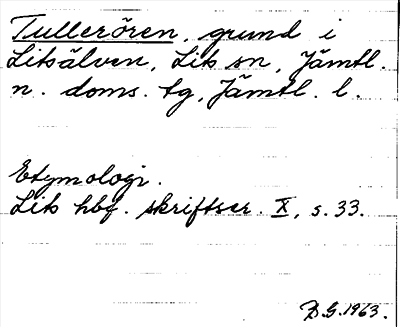 Tullerören, grund i
Litsälven, Lits sn, Jämtl.
n. doms. tg, Jämtl. l.
Etymologi.
Lits hbf. skriftser. X, s. 33.
B.G. 1963.